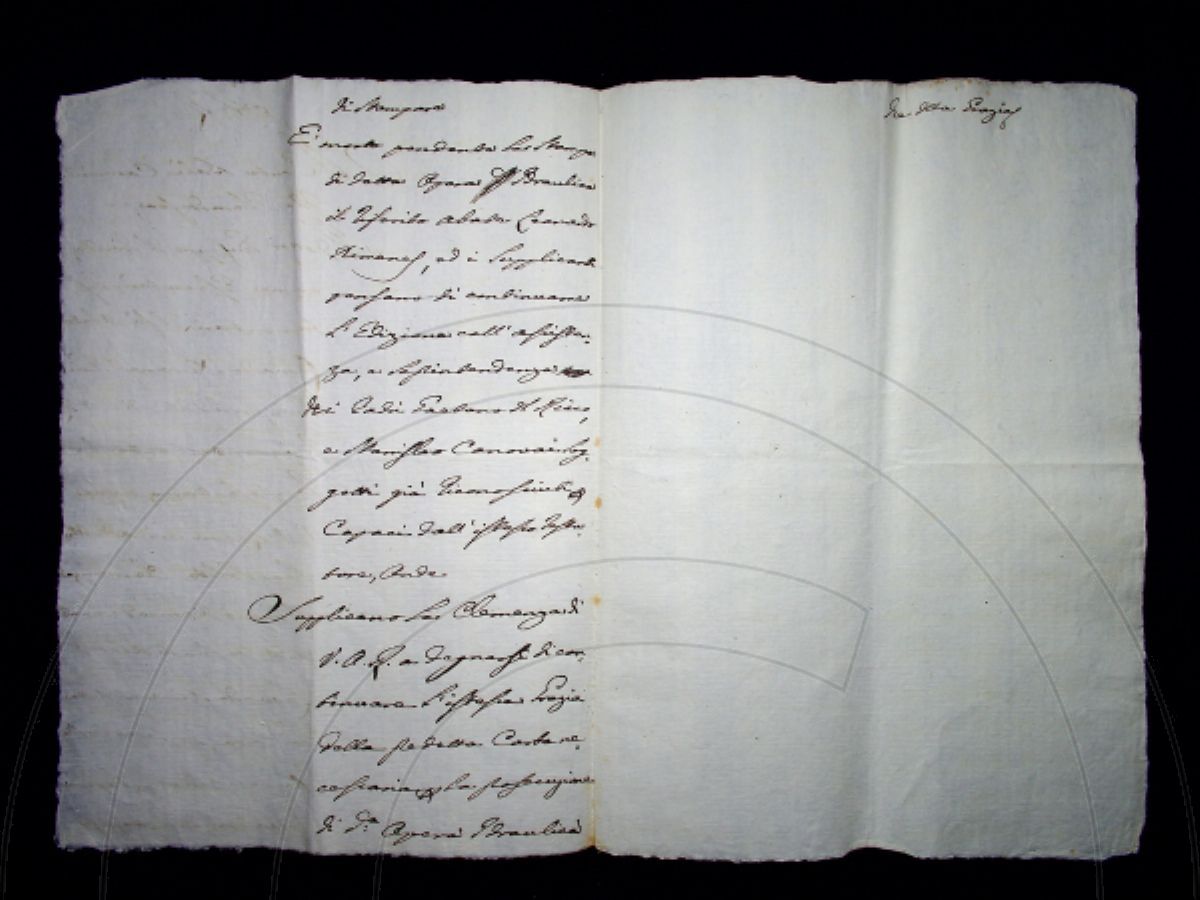 di Stampare
E' morto pendente la Stampa
di detta Opera Idraulica
il riferito Abate Leonardo
Ximenes, ed i Supplicanti
pensano di continuare
l'Edizione coll'assisten-
za, e Soprintendenza
dei Padri Gaetano del Ricco,
e Stanislao Canovai sog-
getti già riconosciuti
Capaci dall'istesso Testa-
tore, Onde
Supplicano la Clemenza di
V. A. R. a degnarsi di con-
tinuare l'istessa Grazia
della predetta Carta ne-
cessaria la prosecuzione
di d.ª Opera Idraulica
Che della Grazia